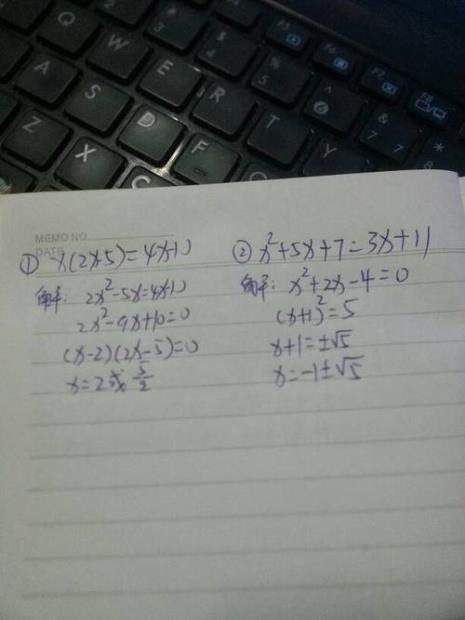 Q
W
E
R
T
Y
A
S
D
F
G
H
Z
X
C
$
4
%
5
6
&
7
*
8
F5
F6
F7
F8
MEMO NO.
DATE
① x(2x-5)=4x-10
解: 2x²-5x=4x-10
2x²-9x+10=0
(x-2)(2x-5)=0
x=2或 5/2
② x²+5x+7=3x+11
解: x²+2x-4=0
(x+1)²=5
x+1=±√5
x=-1±√5